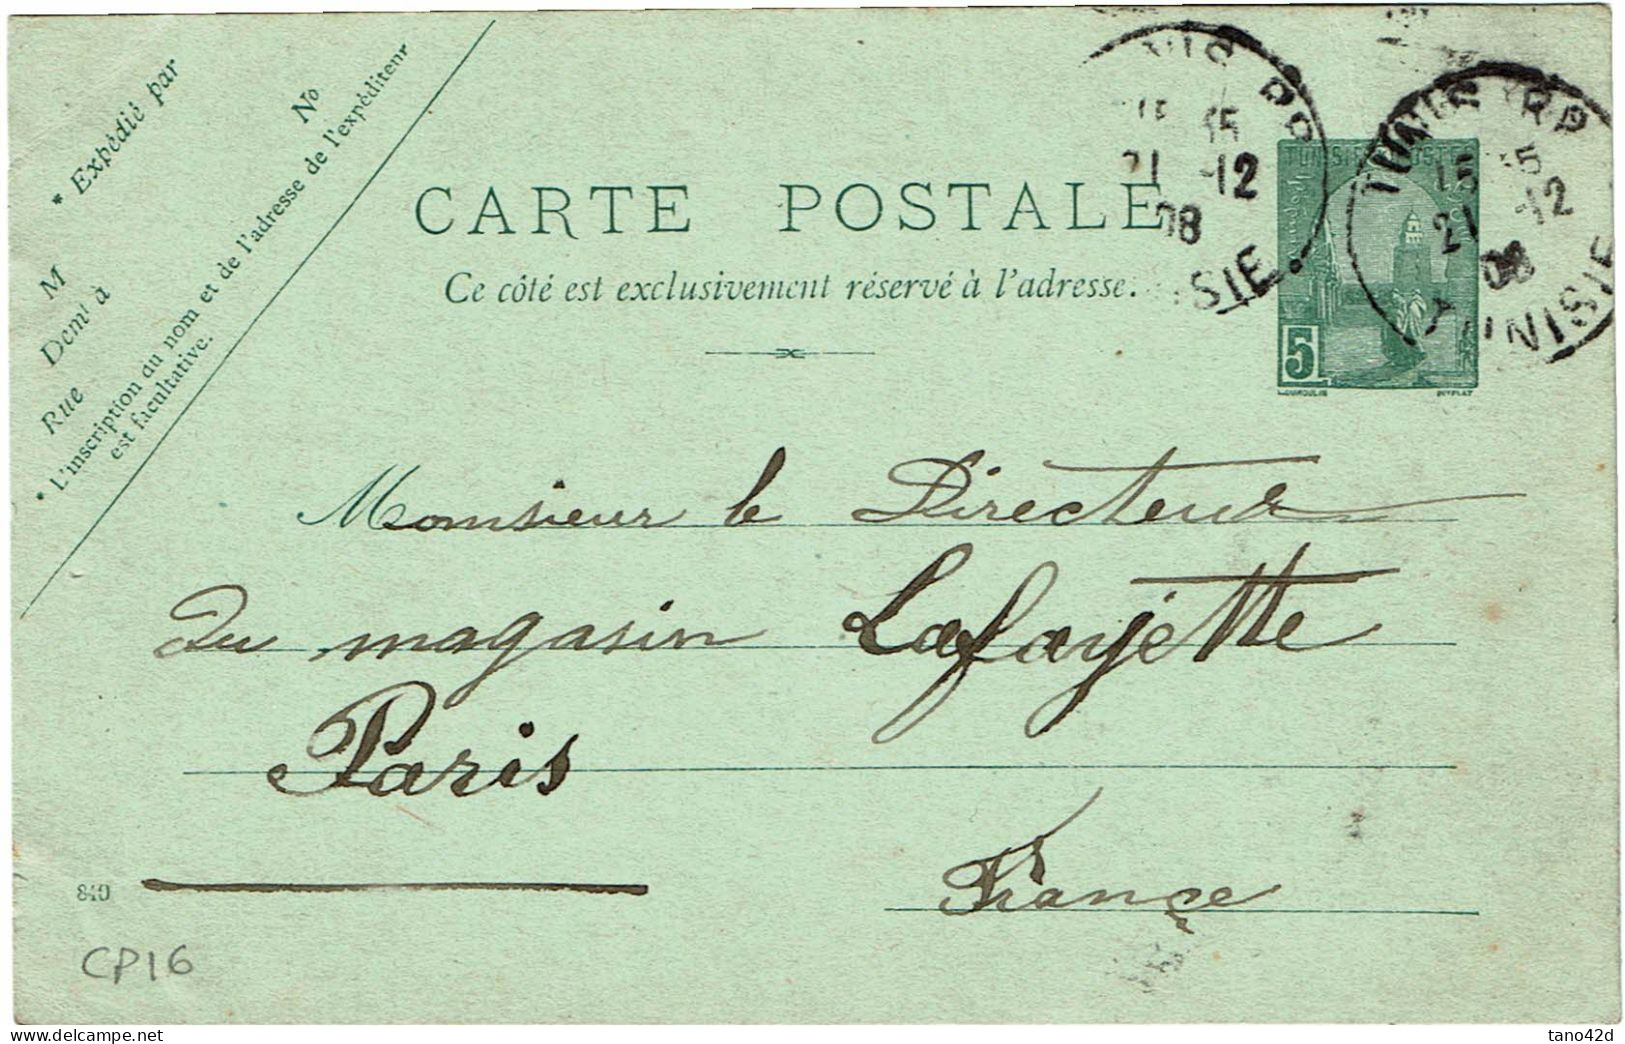 * Expédié par
M
Demt à
Rue
No
* L'inscription du nom et de l'adresse de l'expéditeur
est facultative.
CARTE POSTALE
Ce côté est exclusivement réservé à l'adresse.
15 15
21 -12
08
SIE.
TUNIS RP
15 15
21 -12
08
TUNISIE
TUNISIE POSTES
5
DUMOULIN PUYPLAT
Monsieur le Directeur
Du magasin Lafayette
Paris
France
840
CP16
www.delcampe.net
tano42d